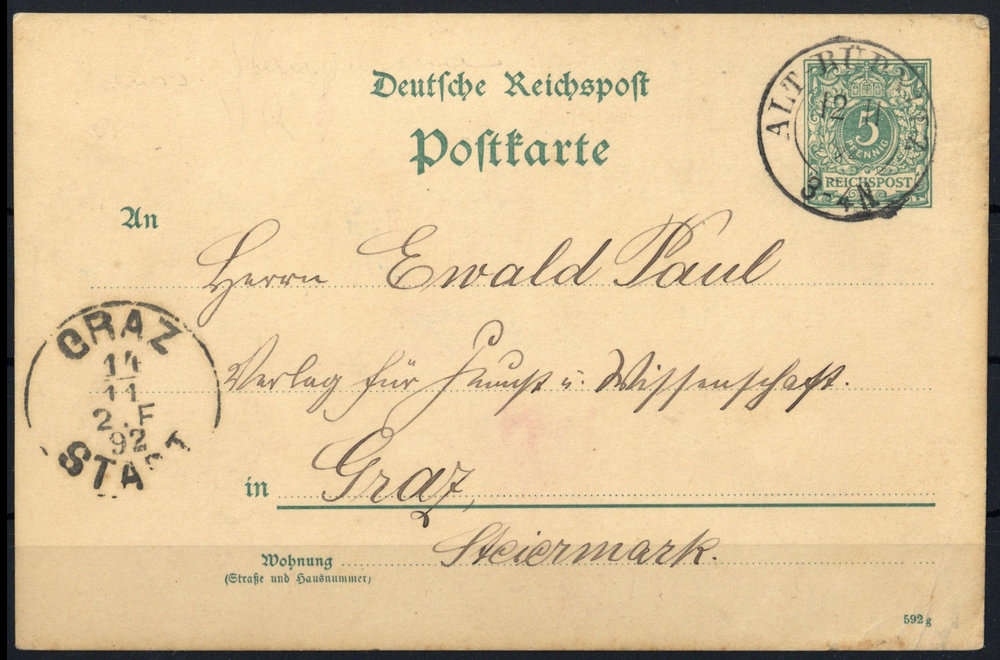 Deutsche Reichspost
Postkarte
ALT
12 11
3-4N
5
PFENNIG
REICHSPOST
An
Herrn Ewald Paul
Verlag für Kunst u. Wissenschaft.
in Graz,
Steiermark.
Wohnung
(Straße und Hausnummer)
GRAZ
14
11
2.F
92
STADT
592 g